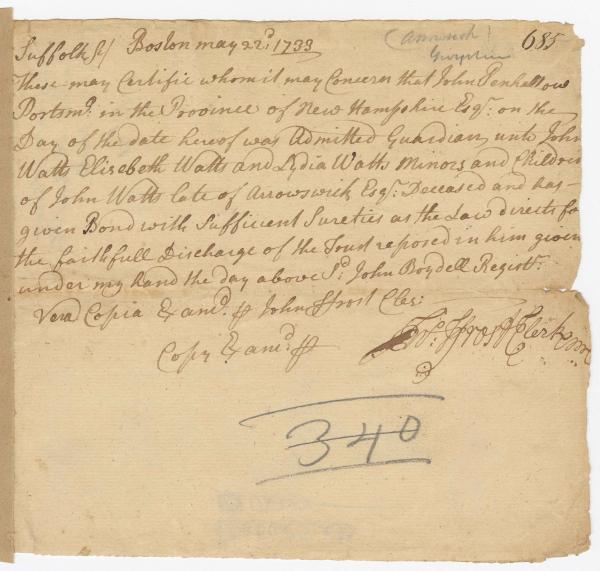 Suffolk ss/ Boston may 22d 1733
(Arrowsick)
685
These may Certifie whom it may Concern that John Penhallow
Portsmo in the Province of New Hampshire Esqr. on the
Day of the date hereof was Admitted Guardian unto John
Watts Elizebeth Watts and Lydia Watts Minors and Children
of John Watts late of Arrowswick Esqr. Deceased and has
given Bond with Sufficent Sureties as the Law directs fo
the faithfull Discharge of the Trust reposed in him given
under my hand the day above sd. John Boydell Registr.
Vera Copia Examd. ⅌ John ffrost Cler:
Copy Examd ⅌
ffrost Clerk
340